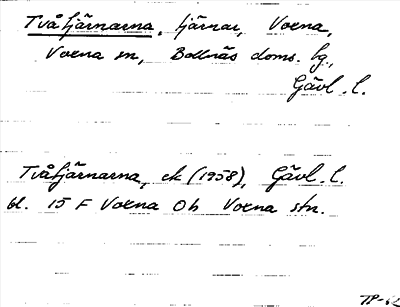 Tvåtjärnarna, tjärnar, Voxna,
Voxna sn, Bollnäs doms. hg,
Gävl. l.
Tvåtjärnarna, ek (1958), Gävl. l.
bl. 15 F Voxna Ob Voxna stn.